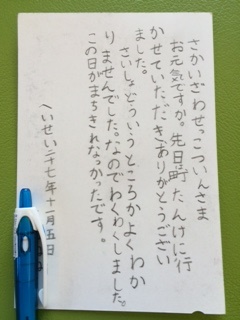 さかいざわせっこついんさま
お元気ですか。先日は町たんけに行
かせていただきありがとうござい
ました。
さいしょどういうところかよくわか
りませんでした。なのでわくわくしました。
この日がまちきれなかったです。
へいせい二十七年十一月五日